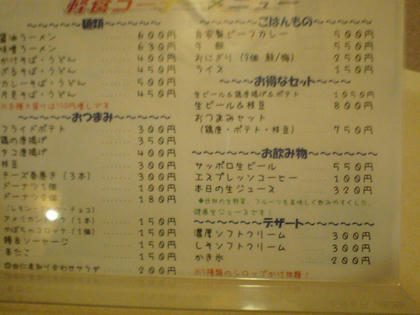 軽食コーナーメニュー
～麺類～
醤油ラーメン 600円
味噌ラーメン 630円
かけそば・うどん 400円
たぬきそば・うどん 450円
カレーそば・うどん 500円
月見そば・うどん 450円
～おつまみ～
フライドポテト 300円
鶏の唐揚げ 350円
タコ唐揚げ 400円
枝豆 300円
チーズ春巻き(3本) 300円
ドーナツ1個 100円
ドーナツ2個 180円
アメリカンドック(1本) 150円
かぼちゃコロッケ(1個) 150円
特大ソーセージ 150円
冬だこ 150円
200円
～ごはんもの～
自家製ビーフカレー 500円
牛飯 500円
おにぎり(1個 鮭/梅) 250円
ライス 150円
～お得なセット～
生ビール&鶏唐揚げ&ポテト 1050円
生ビール&枝豆 800円
おつまみセット
(鶏唐・ポテト・枝豆) 750円
～お飲み物～
サッポロ生ビール 550円
エスプレッソコーヒー 100円
本日の生ジュース 320円
健康生ジュースです!
～デザート～
濃厚ソフトクリーム 300円
レギソフトクリーム 300円
かき氷 200円